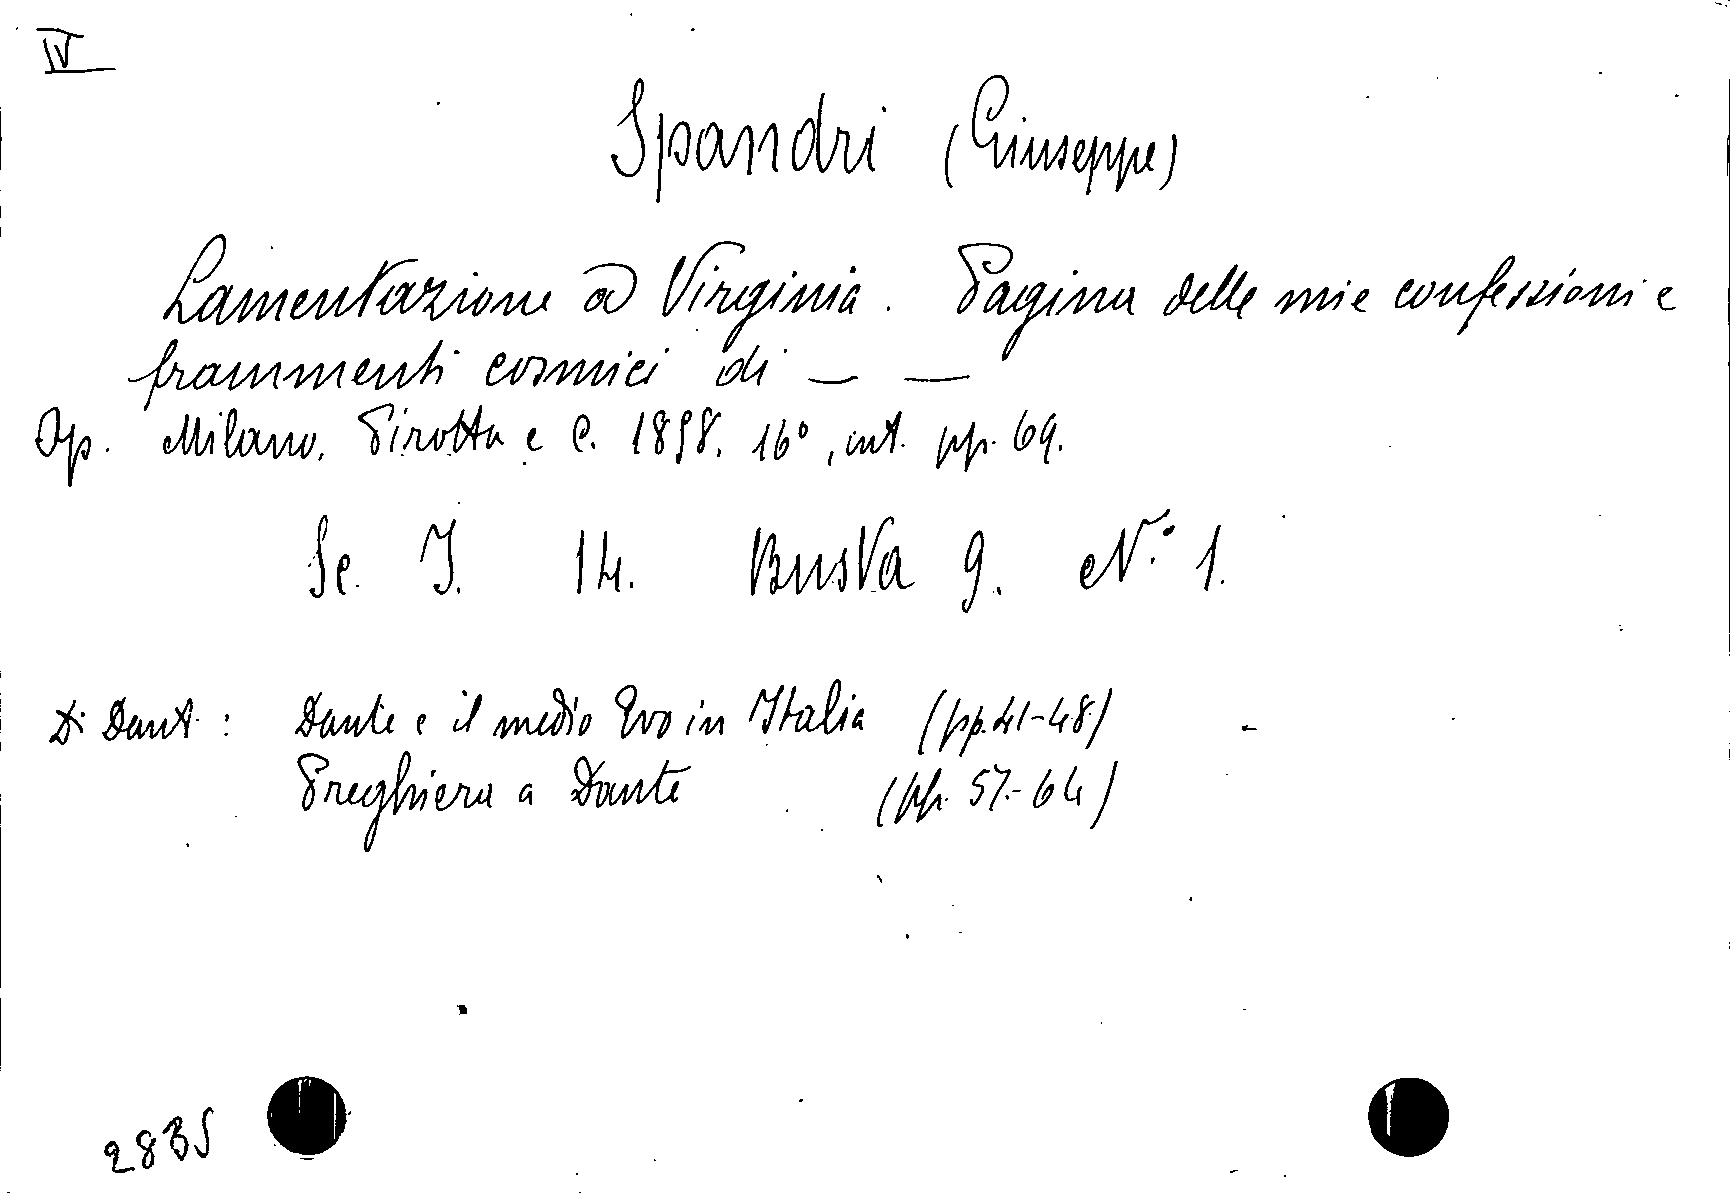 IV
Spandri (Giuseppe)
Lamentazione a Virginia. Pagina delle mie confessioni e
frammenti cosmici di — —
Op. Milano. Pirotta e C. 1898. 16°, int. pp. 69.
Sc. I. 14. Busta 9. N.° 1.
Di Dant.: Dante e il medio Evo in Italia (pp. 41-48)
Preghiera a Dante (pp. 57.-64)
2835